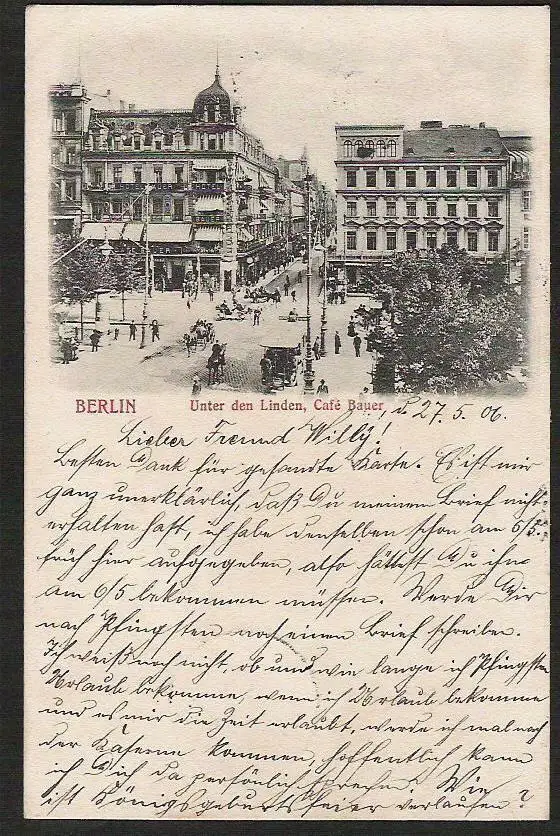 BERLIN Unter den Linden, Café Bauer, d. 27.5.06.
Lieber Freund Willy!
Besten Dank für gesandte Karte. Es ist mir
ganz unerklärlich, daß Du meinen Brief nicht
erhalten hast, ich habe denselben schon am 6/5.
früh hier aufgegeben, also hättest Du ihn
am 6/5 bekommen müssen. Werde Dir
nach Pfingsten noch einen Brief schreiben.
Ich weiß noch nicht, ob und wie lange ich Pfingsten
Urlaub bekomme, wenn ich Urlaub bekomme
und es mir die Zeit erlaubt, werde ich mal nach
der Kaserne kommen, hoffentlich kann
ich Dich da persönlich sprechen. Wie
ist Königsgeburtsfeier verlaufen?